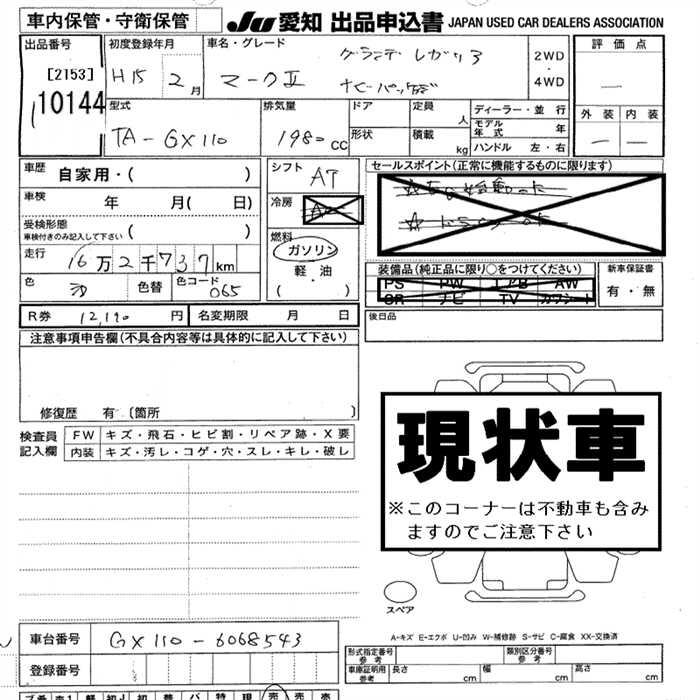 車内保管・守衛保管 JU 愛知 出品申込書 JAPAN USED CAR DEALERS ASSOCIATION
出品番号 初度登録年月 車名・グレード 2WD・4WD 評価点
[2153] H15 2月 マークⅡ
10144 外装 内装
型式 排気量 ドア 定員 人 ディーラー・並行
モデル年式 年
TA-GX110 1980cc 形状 積載 kg ハンドル 左・右
車歴 自家用・( ) シフト AT セールスポイント(正常に機能するものに限ります)
車検 年 月( 日) 冷房
受検形態 車検付きのみ記入して下さい ( ) 燃料
走行 16万2千737km ガソリン
軽油
( ・ )
装備品(純正品に限り○をつけてください) 新車保証書
色 色替 色コード 065 PS PW AW 有・無
SR ナビ TV カワシート
R券 12,190円 名変期限 月 日 後日品
注意事項申告欄(不具合内容等は具体的に記入して下さい)
修復歴 有〔箇所 〕
検査員記入欄 FW キズ・飛石・ヒビ割・リペア跡・X要
内装 キズ・汚レ・コゲ・穴・スレ・キレ・破レ
現状車
※このコーナーは不動車も含み
ますのでご注意下さい
スペア
A-キズ E-エクボ U-凹み W-補修跡 S-サビ C-腐食 XX-交換済
車台番号 GX110-6068543
登録番号
形式指定番号 参考 類別区分番号 参考
車庫証明用 参考 長さ cm 幅 cm 高さ cm